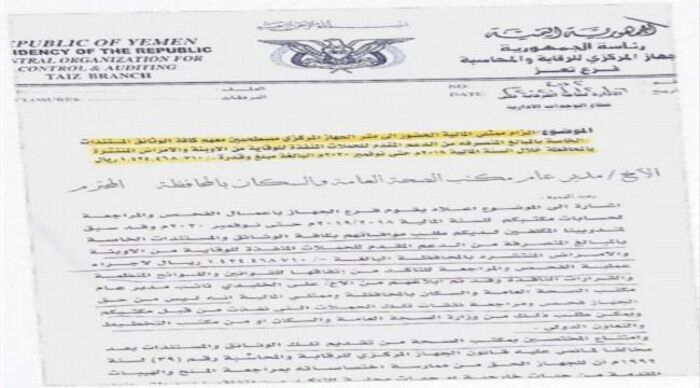 REPUBLIC OF YEMEN
PRESIDENCY OF THE REPUBLIC
CENTRAL ORGANIZATION FOR
CONTROL & AUDITING
TAIZ BRANCH
الجمهورية اليمنية
رئاسة الجمهورية
الجهاز المركزي للرقابة والمحاسبة
فرع تعز
DATE
قطاع الوحدات الادارية
الموضوع: الزام ممثلي المالية الحضور الى مقر الجهاز المركزي مصطحبين معهم كافة الوثائق والمستندات
الخاصة بالمبالغ المنصرفه من الدعم المقدم للحملات المنفذة للوقاية من الاوبئة والامراض المنتشرة
بالمحافظة خلال السنة المالية ٢٠١٨م حتى نوفمبر ٢٠٢٠م البالغة مبلغ وقدرة ١.٤٣٤.٤٦٨.٧١٠/- ريال
الأخ/ مدير عام مكتب الصحة العامة والسكان بالمحافظة المحترم
اشارة الى الموضوع اعلاه يقوم فرع الجهاز باعمال الفحص والمراجعة
لحسابات مكتبكم للسنة المالية ٢٠١٩/٢٠١٨م حتى نوفمبر ٢٠٢٠م وقد سبق
لمندوبينا المكلفين لديكم طلب موافاتهم بكافة الوثائق والمستندات الخاصة
بالمبالغ المنصرفة من الدعم المقدم للحملات المنفذة للوقاية من الاوبئة
والامراض المنتشره بالمحافظة البالغة ١٤٣٤٤٦٨٧١٠/- ريال لاجراء
عملية الفحص والمراجعة للتاكد من اتفاقها للقوانين واللوائح المنظمة
والقرارات النافذة وقد تم ابلاغهم من الاخ/ علي الخليدي نائب مدير عام
مكتب الصحة العامة والسكان بالمحافظة وممثلي المالية انه ليس من حق
الجهاز فحص ومراجعة نفقات تلك الحملات التي نفذت من قبل مكتبكم
ويمكن طلب ذلك من وزارة الصحة العامة والسكان او من مكتب التخطيط
والتعاون الدولي.
وامتناع المختصين بمكتب الصحة من تقديم تلك الوثائق والمستندات يعد
مخالفا لما نص عليه قانون الجهاز المركزي للرقابة والمحاسبة رقم (٣٩) لسنة
١٩٩٢م ان للجهاز الحق من ممارسة اختصاساته بمراجعة المنح والهبات